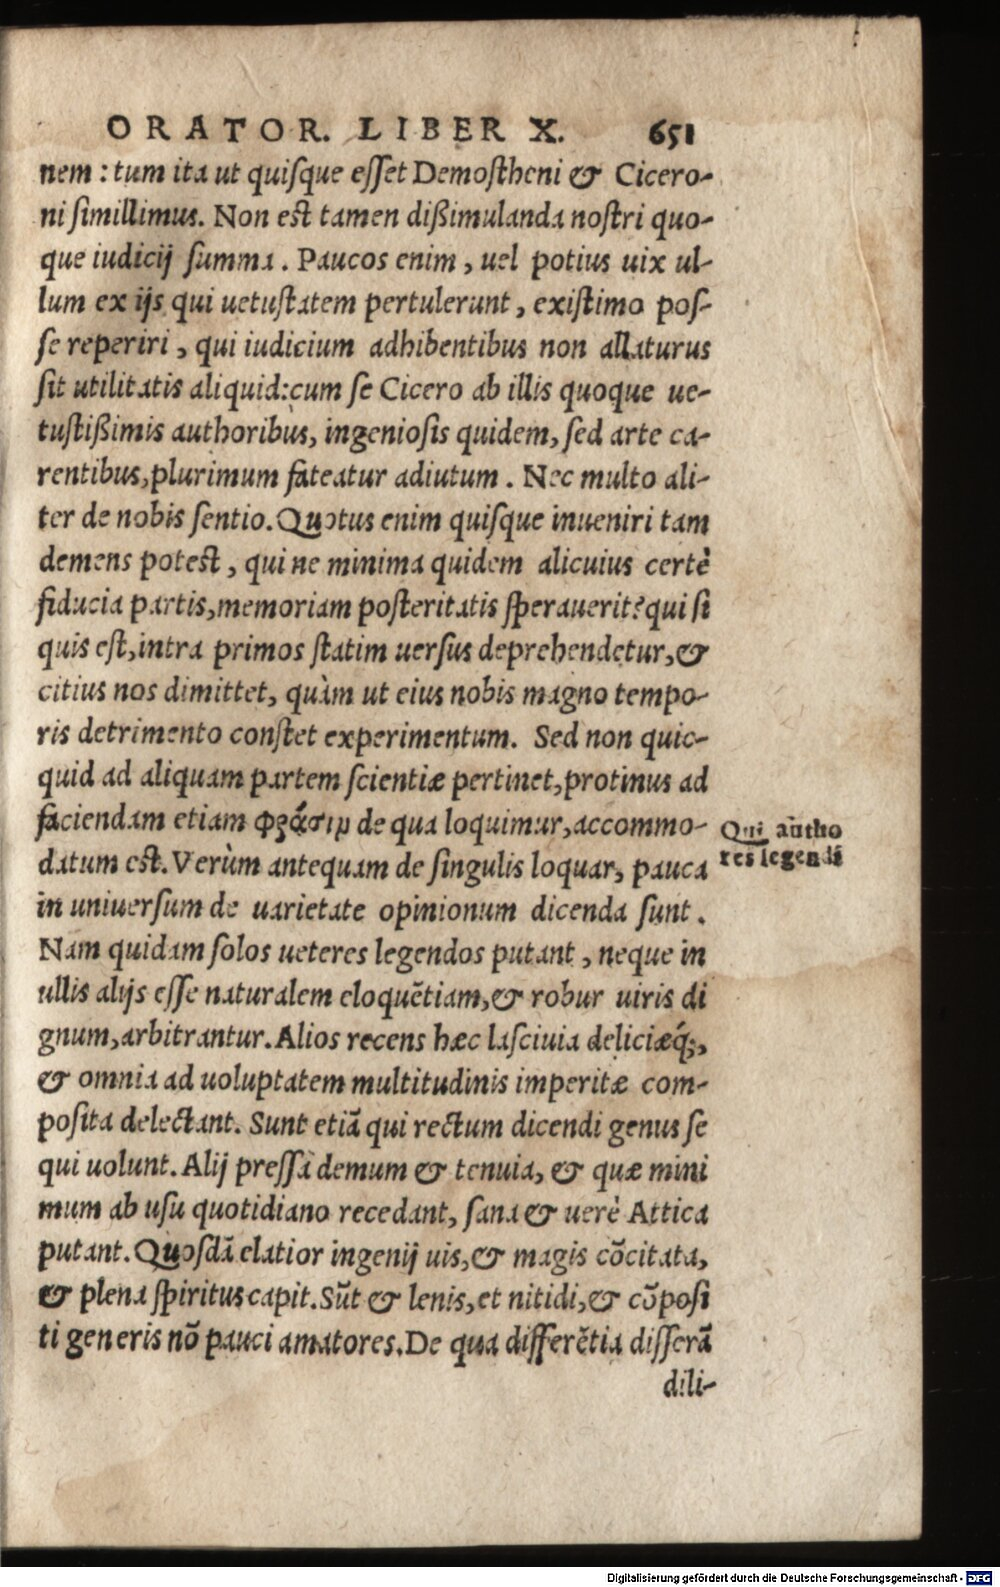 ORATOR. LIBER X. 651
nem : tum ita ut quiſque eſſet Demoſtheni & Cicero-
ni ſimillimus. Non est tamen dißimulanda noſtri quo-
que iudicij ſumma . Paucos enim , uel potius uix ul-
lum ex ijs qui uetuſtatem pertulerunt , exiſtimo poſ-
ſe reperiri , qui iudicium adhibentibus non allaturus
ſit utilitatis aliquid:cum ſe Cicero ab illis quoque ue-
tuſtißimis authoribus, ingenioſis quidem, ſed arte ca-
rentibus,plurimum fateatur adiutum . Nec multo ali-
ter de nobis ſentio. Quotus enim quiſque inueniri tam
demens potest , qui ne minima quidem alicuius certè
fiducia partis,memoriam poſteritatis ſperauerit?qui ſi
quis eſt,intra primos ſtatim uerſus deprehendetur,&
citius nos dimittet, quàm ut eius nobis magno tempo-
ris detrimento conſtet experimentum. Sed non quic-
quid ad aliquam partem ſcientiæ pertinet,protinus ad
faciendam etiam φράσιμ de qua loquimur,accommo-
datum est. Verùm antequam de ſingulis loquar, pauca
in uniuerſum de uarietate opinionum dicenda ſunt .
Nam quidam ſolos ueteres legendos putant , neque in
ullis alijs eſſe naturalem eloquētiam,& robur uiris di
gnum,arbitrantur. Alios recens hæc laſciuia deliciæq́;,
& omnia ad uoluptatem multitudinis imperitæ com-
poſita delectant. Sunt etiā qui rectum dicendi genus ſe
qui uolunt. Alij preſſa demum & tenuia, & quæ mini
mum ab uſu quotidiano recedant, ſana & uerè Attica
putant. Quoſdā elatior ingenij uis,& magis cōcitata,
& plena ſpiritus capit. Sūt & lenis,et nitidi,& cōpoſi
ti generis nō pauci amatores. De qua differētia diſſerā
dili-
Qui autho
res legendi
Digitalisierung gefördert durch die Deutsche Forschungsgemeinschaft - DFG